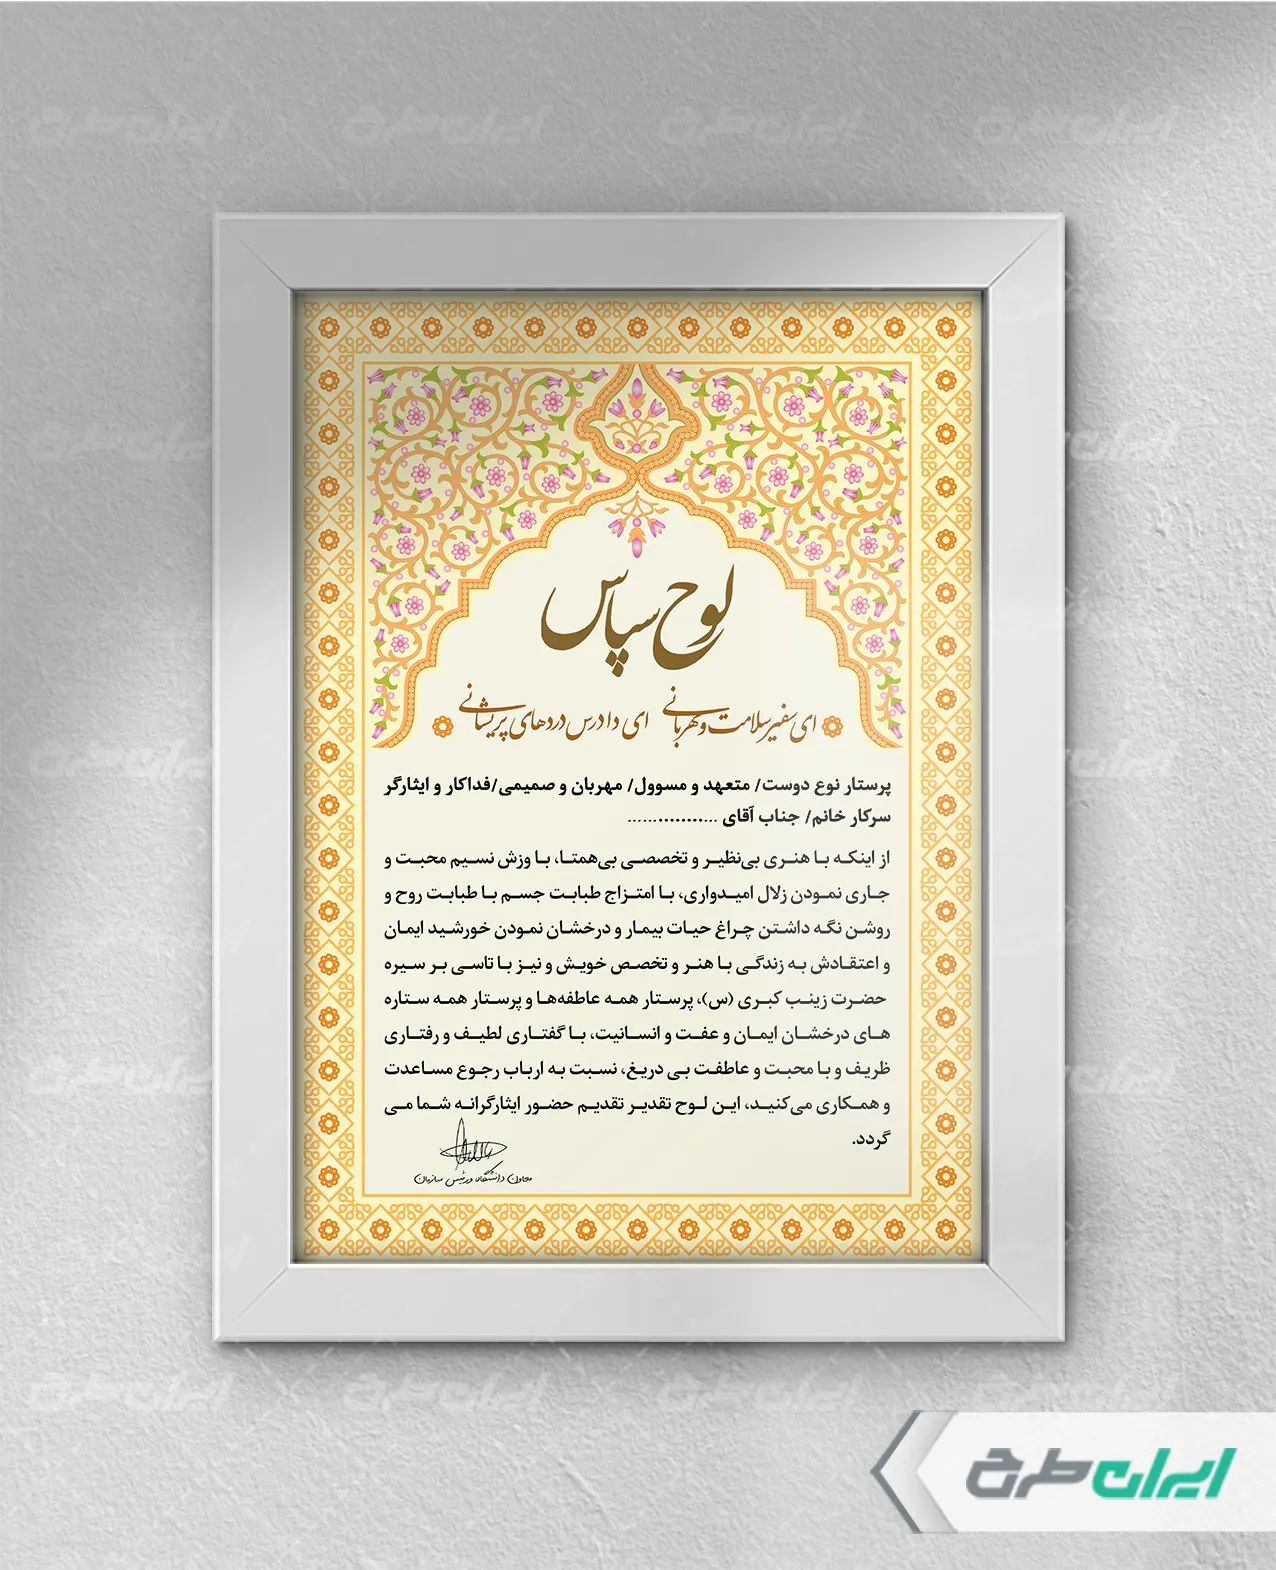 لوح سپاس
ای سفیر سلامت و مهربانی ای دادرس دردهای پریشانی
پرستار نوع دوست/ متعهد و مسوول/ مهربان و صمیمی/فداکار و ایثارگر
سرکار خانم/ جناب آقای ................
از اینکه با هنری بی‌نظیر و تخصصی بی‌همتا، با وزش نسیم محبت و
جاری نمودن زلال امیدواری، با امتزاج طبابت جسم با طبابت روح و
روشن نگه داشتن چراغ حیات بیمار و درخشان نمودن خورشید ایمان
و اعتقادش به زندگی با هنر و تخصص خویش و نیز با تاسی بر سیره
حضرت زینب کبری (س)، پرستار همه عاطفه‌ها و پرستار همه ستاره
های درخشان ایمان و عفت و انسانیت، با گفتاری لطیف و رفتاری
ظریف و با محبت و عاطفت بی دریغ، نسبت به ارباب رجوع مساعدت
و همکاری می‌کنید، این لوح تقدیر تقدیم حضور ایثارگرانه شما می
گردد.
معاون دانشگاه و رئیس سازمان
ایران طرح